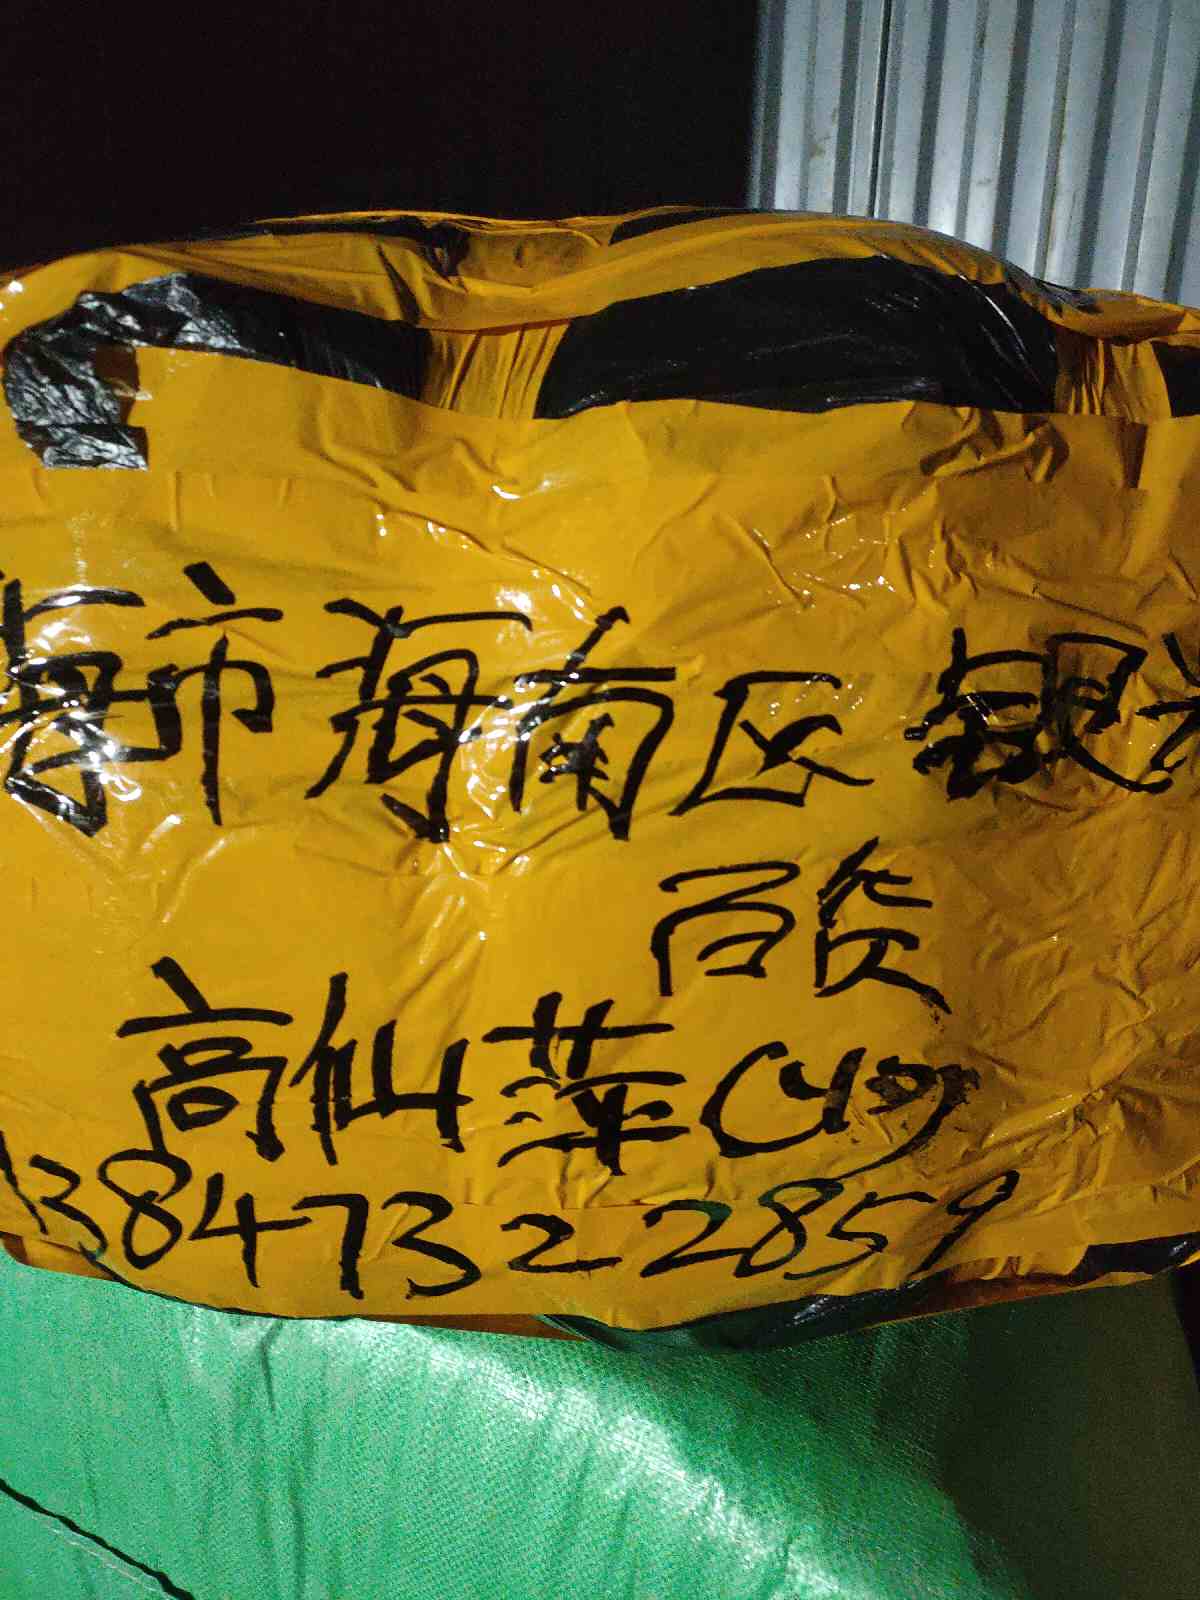 海市海南区 银
百货
高仙萍(49)
13847322859